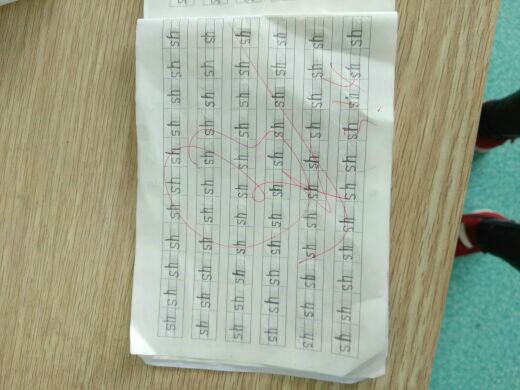 sh sh sh sh sh sh sh sh sh sh sh
sh sh sh sh sh sh sh sh sh sh sh
sh sh sh sh sh sh sh sh sh sh sh
sh sh sh sh sh sh sh sh sh sh sh
sh sh sh sh sh sh sh sh sh sh sh
sh sh sh sh sh sh sh sh sh sh sh